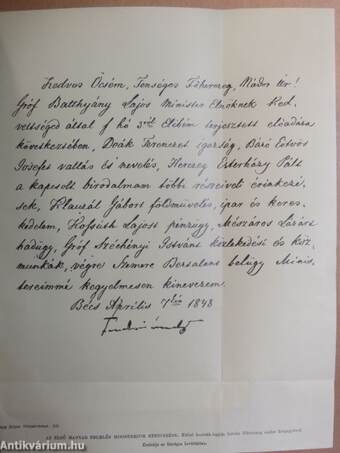 Kedves Öcsém, Fenséges Főherczeg, Nádor Úr!
Gróf Batthyány Lajos Minister Elnöknek Ked-
vettséged által f. hó 3ról Elibém terjesztett előadása
következtében, Deák Ferenczet igazság, Báró Eötvös
Jósefet vallás és nevelés, Herczeg Esterházy Pált
a kapcsolt birodalmam többi részeiveli érintkezé-
sek, Klauzál Gábort földmüvelés, ipar és keres-
kedelem, Kossúth Lajost pénzügy, Mészáros Lázárt
hadügy, Gróf Széchényi Istvánt közlekedési és köz-
munkák, végre Szemere Bertalant belügy Minis-
tereimmé kegyelmesen kinevezem.
Bécs Április 7kén 1848
AZ ELSŐ MAGYAR FELELŐS MINISZTERIUM KINEVEZÉSE.
Antikvárium.hu